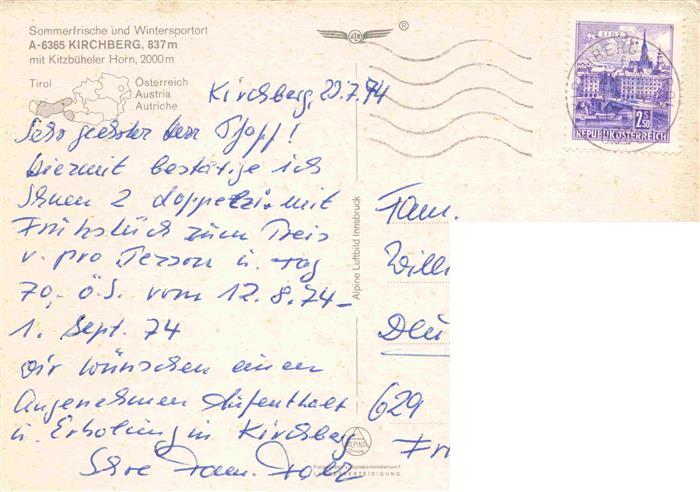 Sommerfrische und Wintersportort
A-6365 KIRCHBERG, 837 m
mit Kitzbüheler Horn, 2000 m
Tirol
Österreich
Austria
Autriche
Kirchberg, 20.7.74
Sehr geehrter Herr
Hiermit bestätige ich
Ihnen 2 Doppelzi. mit
Frühstück zum Preis
v. pro Person u. Tag
70,- ö.S. vom 12.8.74-
1. Sept. 74
Wir wünschen einen
Angenehmen Aufenthalt
u. Erholung in Kirchberg
Ihre Fam.
Alpine Luftbild Innsbruck
ALPINE
®
LINZ
2.50
REPUBLIK ÖSTERREICH
Fam.
Willi
Deu
629
Fr